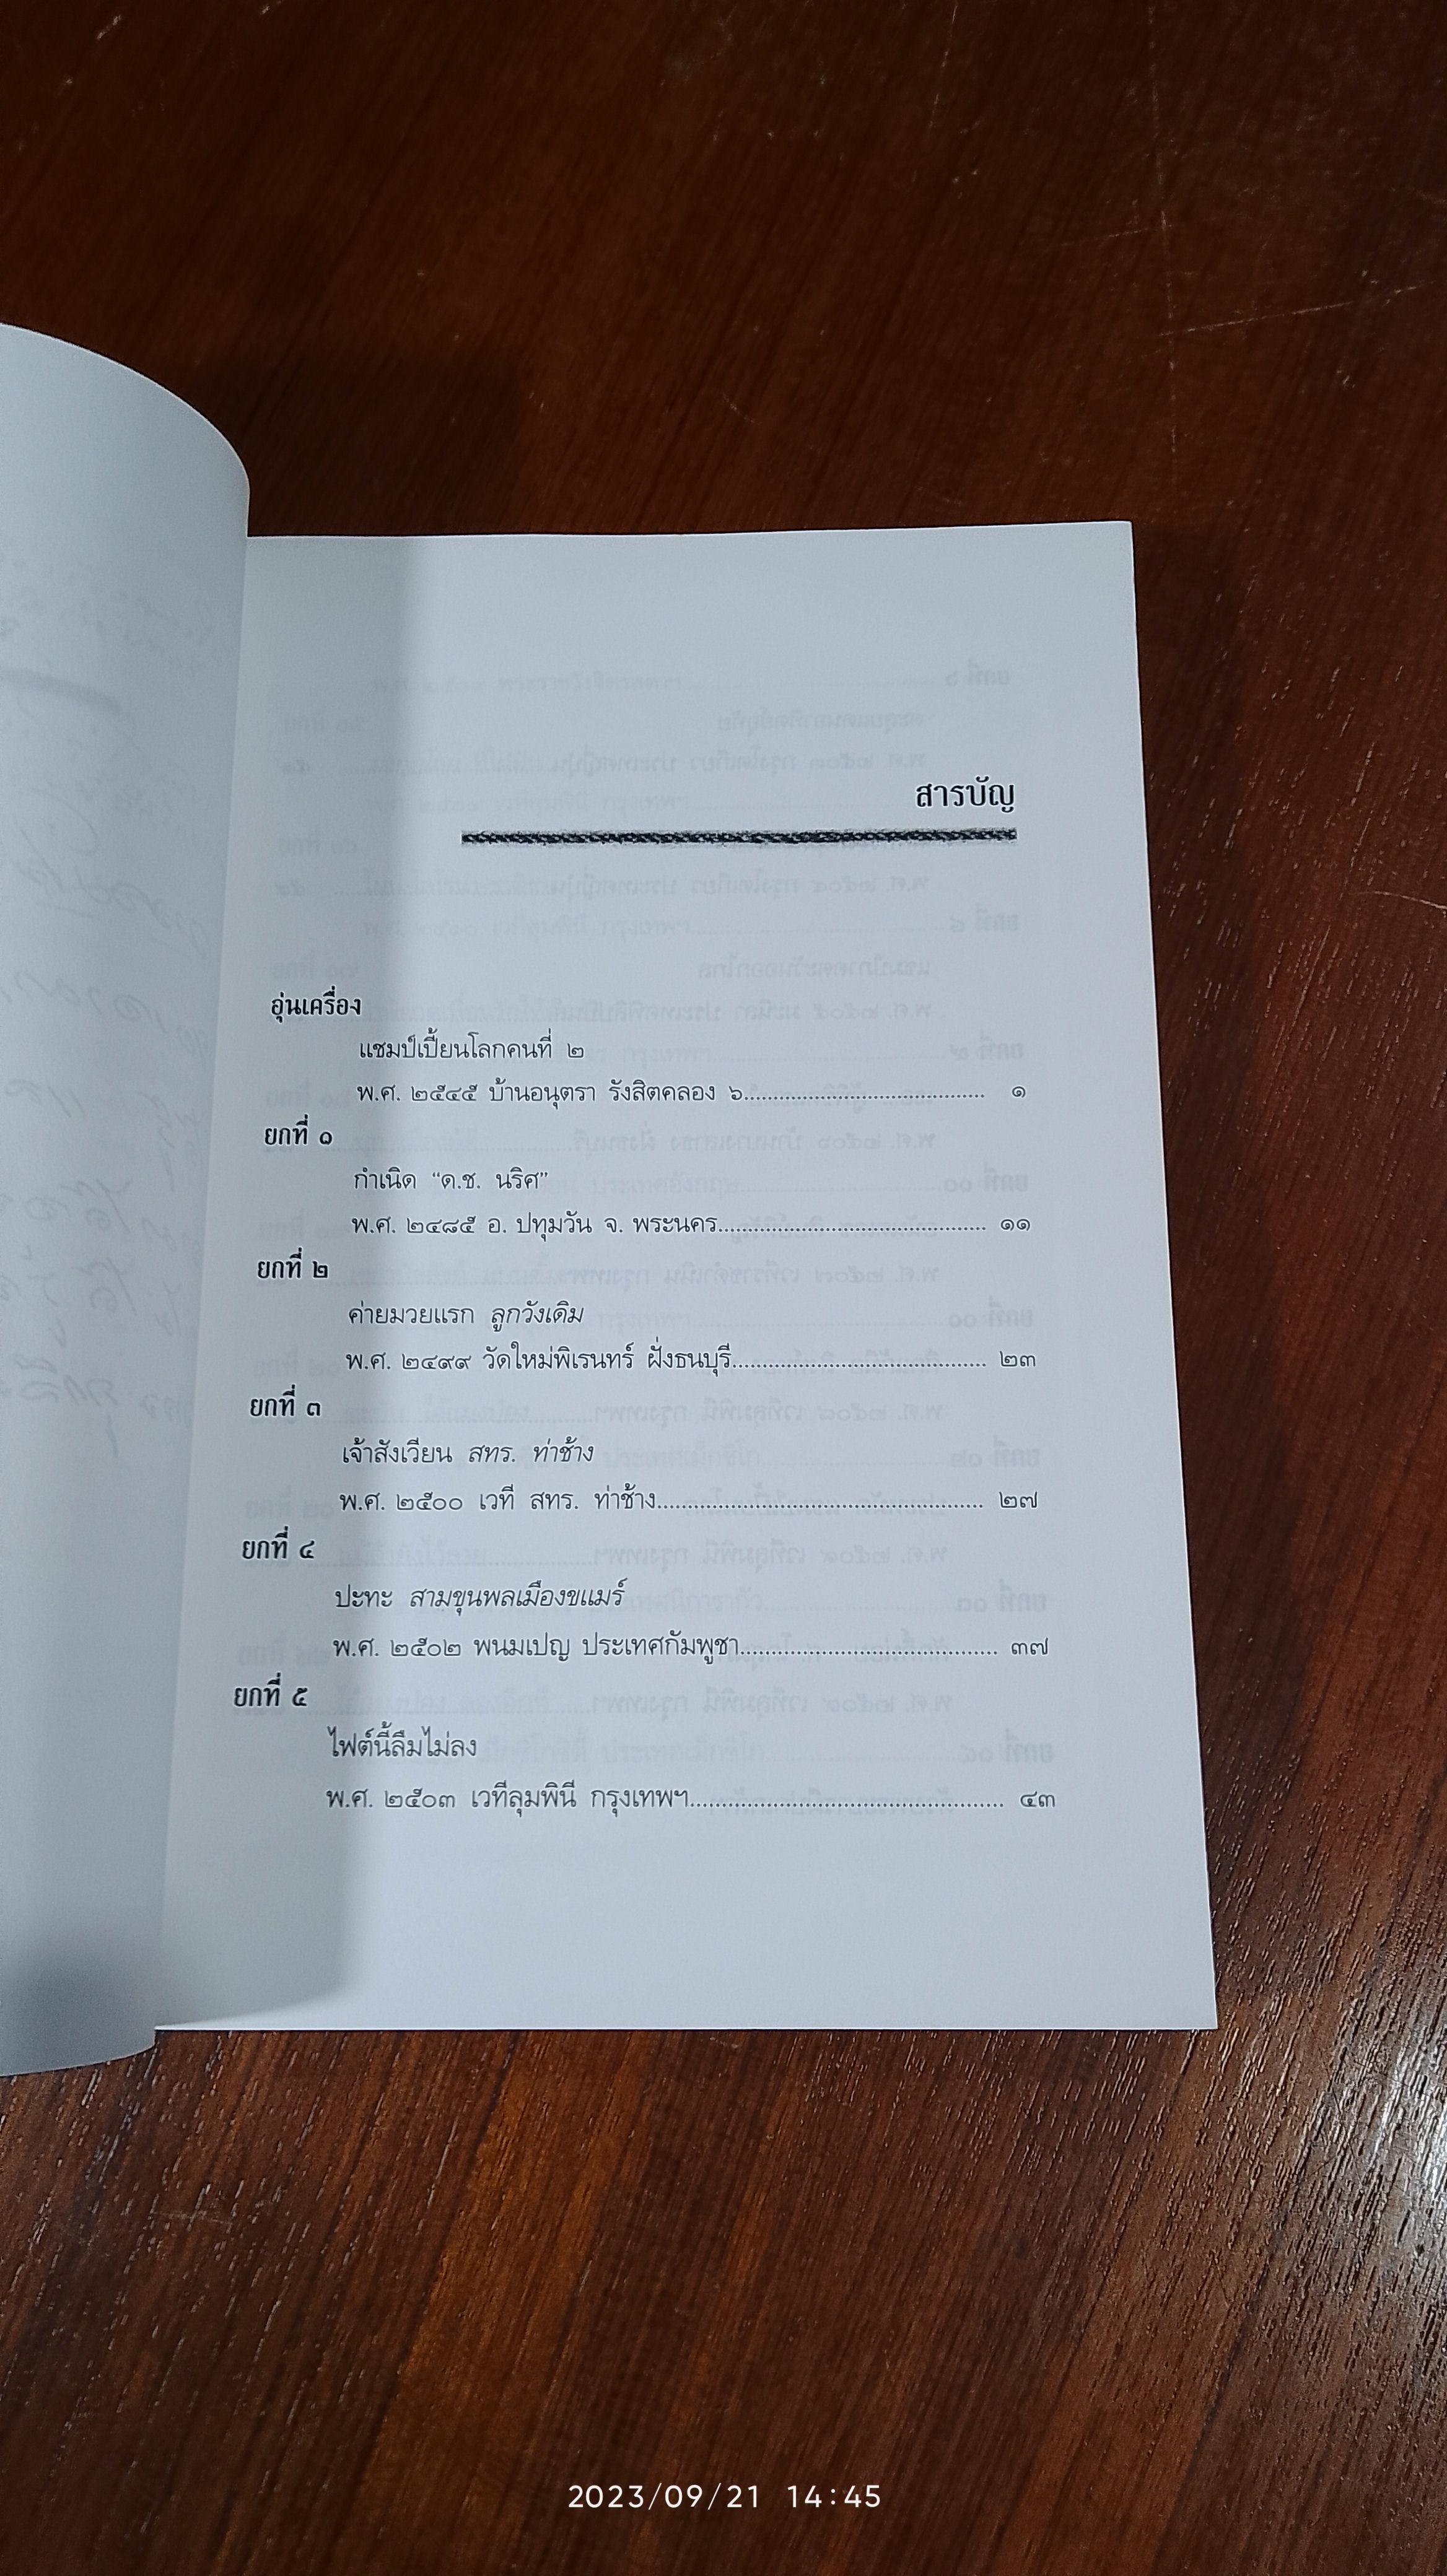 สารบัญ
อุ่นเครื่อง
แชมป์เปี้ยนโลกคนที่ ๒
พ.ศ. ๒๕๔๕ บ้านอนุตรา รังสิตคลอง ๖ ๑
ยกที่ ๑
กำเนิด “ด.ช. นริศ”
พ.ศ. ๒๔๘๕ อ. ปทุมวัน จ. พระนคร ๑๑
ยกที่ ๒
ค่ายมวยแรก ลูกวังเดิม
พ.ศ. ๒๔๙๙ วัดใหม่พิเรนทร์ ฝั่งธนบุรี ๒๓
ยกที่ ๓
เจ้าสังเวียน สทร. ท่าช้าง
พ.ศ. ๒๕๐๐ เวที สทร. ท่าช้าง ๒๗
ยกที่ ๔
ปะทะ สามขุนพลเมืองขแมร์
พ.ศ. ๒๕๐๒ พนมเปญ ประเทศกัมพูชา ๓๗
ยกที่ ๕
ไฟต์นี้ลืมไม่ลง
พ.ศ. ๒๕๐๓ เวทีลุมพินี กรุงเทพฯ ๔๓
2023/09/21 14:45